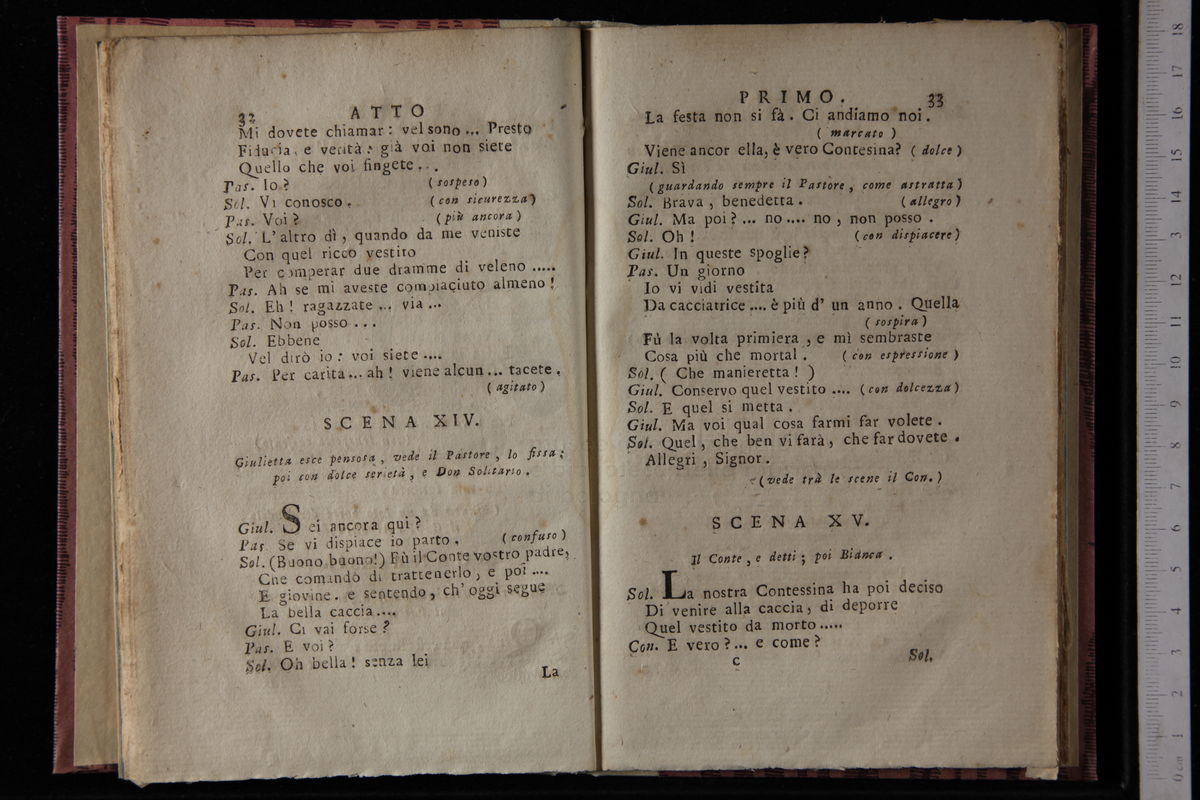 32 ATTO
Mi dovete chiamar: vel sono ... Presto
Fiducia, e verità: già voi non siete
Quello che voi fingete...
Pas. Io? (sospeso)
Sol. Vi conosco. (con sicurezza)
Pas. Voi? (più ancora)
Sol. L'altro dì, quando da me veniste
Con quel ricco vestito
Per comperar due dramme di veleno .....
Pas. Ah se mi aveste compiaciuto almeno!
Sol. Eh! ragazzate ... via ...
Pas. Non posso ...
Sol. Ebbene
Vel dirò io: voi siete ....
Pas. Per carità... ah! viene alcun ... tacete.
(agitato)
SCENA XIV.
Giulietta esce pensosa, vede il Pastore, lo fissa;
poi con dolce serietà, e Don Solitario.
Giul. Sei ancora qui?
Pas. Se vi dispiace io parto. (confuso)
Sol. (Buono buono!) Fù il Conte vostro padre,
Che comandò di trattenerlo, e poi ....
E giovine. e sentendo, ch'oggi segue
La bella caccia....
Giul. Ci vai forse?
Pas. E voi?
Sol. Oh bella! senza lei
La
PRIMO. 33
La festa non si fà. Ci andiamo noi.
(marcato)
Viene ancor ella, è vero Contesina? (dolce)
Giul. Sì
(guardando sempre il Pastore, come astratta)
Sol. Brava, benedetta. (allegro)
Giul. Ma poi? ... no .... no, non posso.
Sol. Oh! (con dispiacere)
Giul. In queste spoglie?
Pas. Un giorno
Io vi vidi vestita
Da cacciatrice .... è più d'un anno. Quella
(sospira)
Fù la volta primiera, e mì sembraste
Cosa più che mortal. (con espressione)
Sol. (Che manieretta!)
Giul. Conservo quel vestito .... (con dolcezza)
Sol. E quel si metta.
Giul. Ma voi qual cosa farmi far volete.
Sol. Quel, che ben vi farà, che far dovete.
Allegri, Signor.
(vede trà le scene il Con.)
SCENA XV.
Il Conte, e detti; poi Bianca.
Sol. La nostra Contessina ha poi deciso
Di venire alla caccia, di deporre
Quel vestito da morto .....
Con. E vero? ... e come?
C Sol.
0 cm 1 2 3 4 5 6 7 8 9 10 11 12 13 14 15 16 17 18